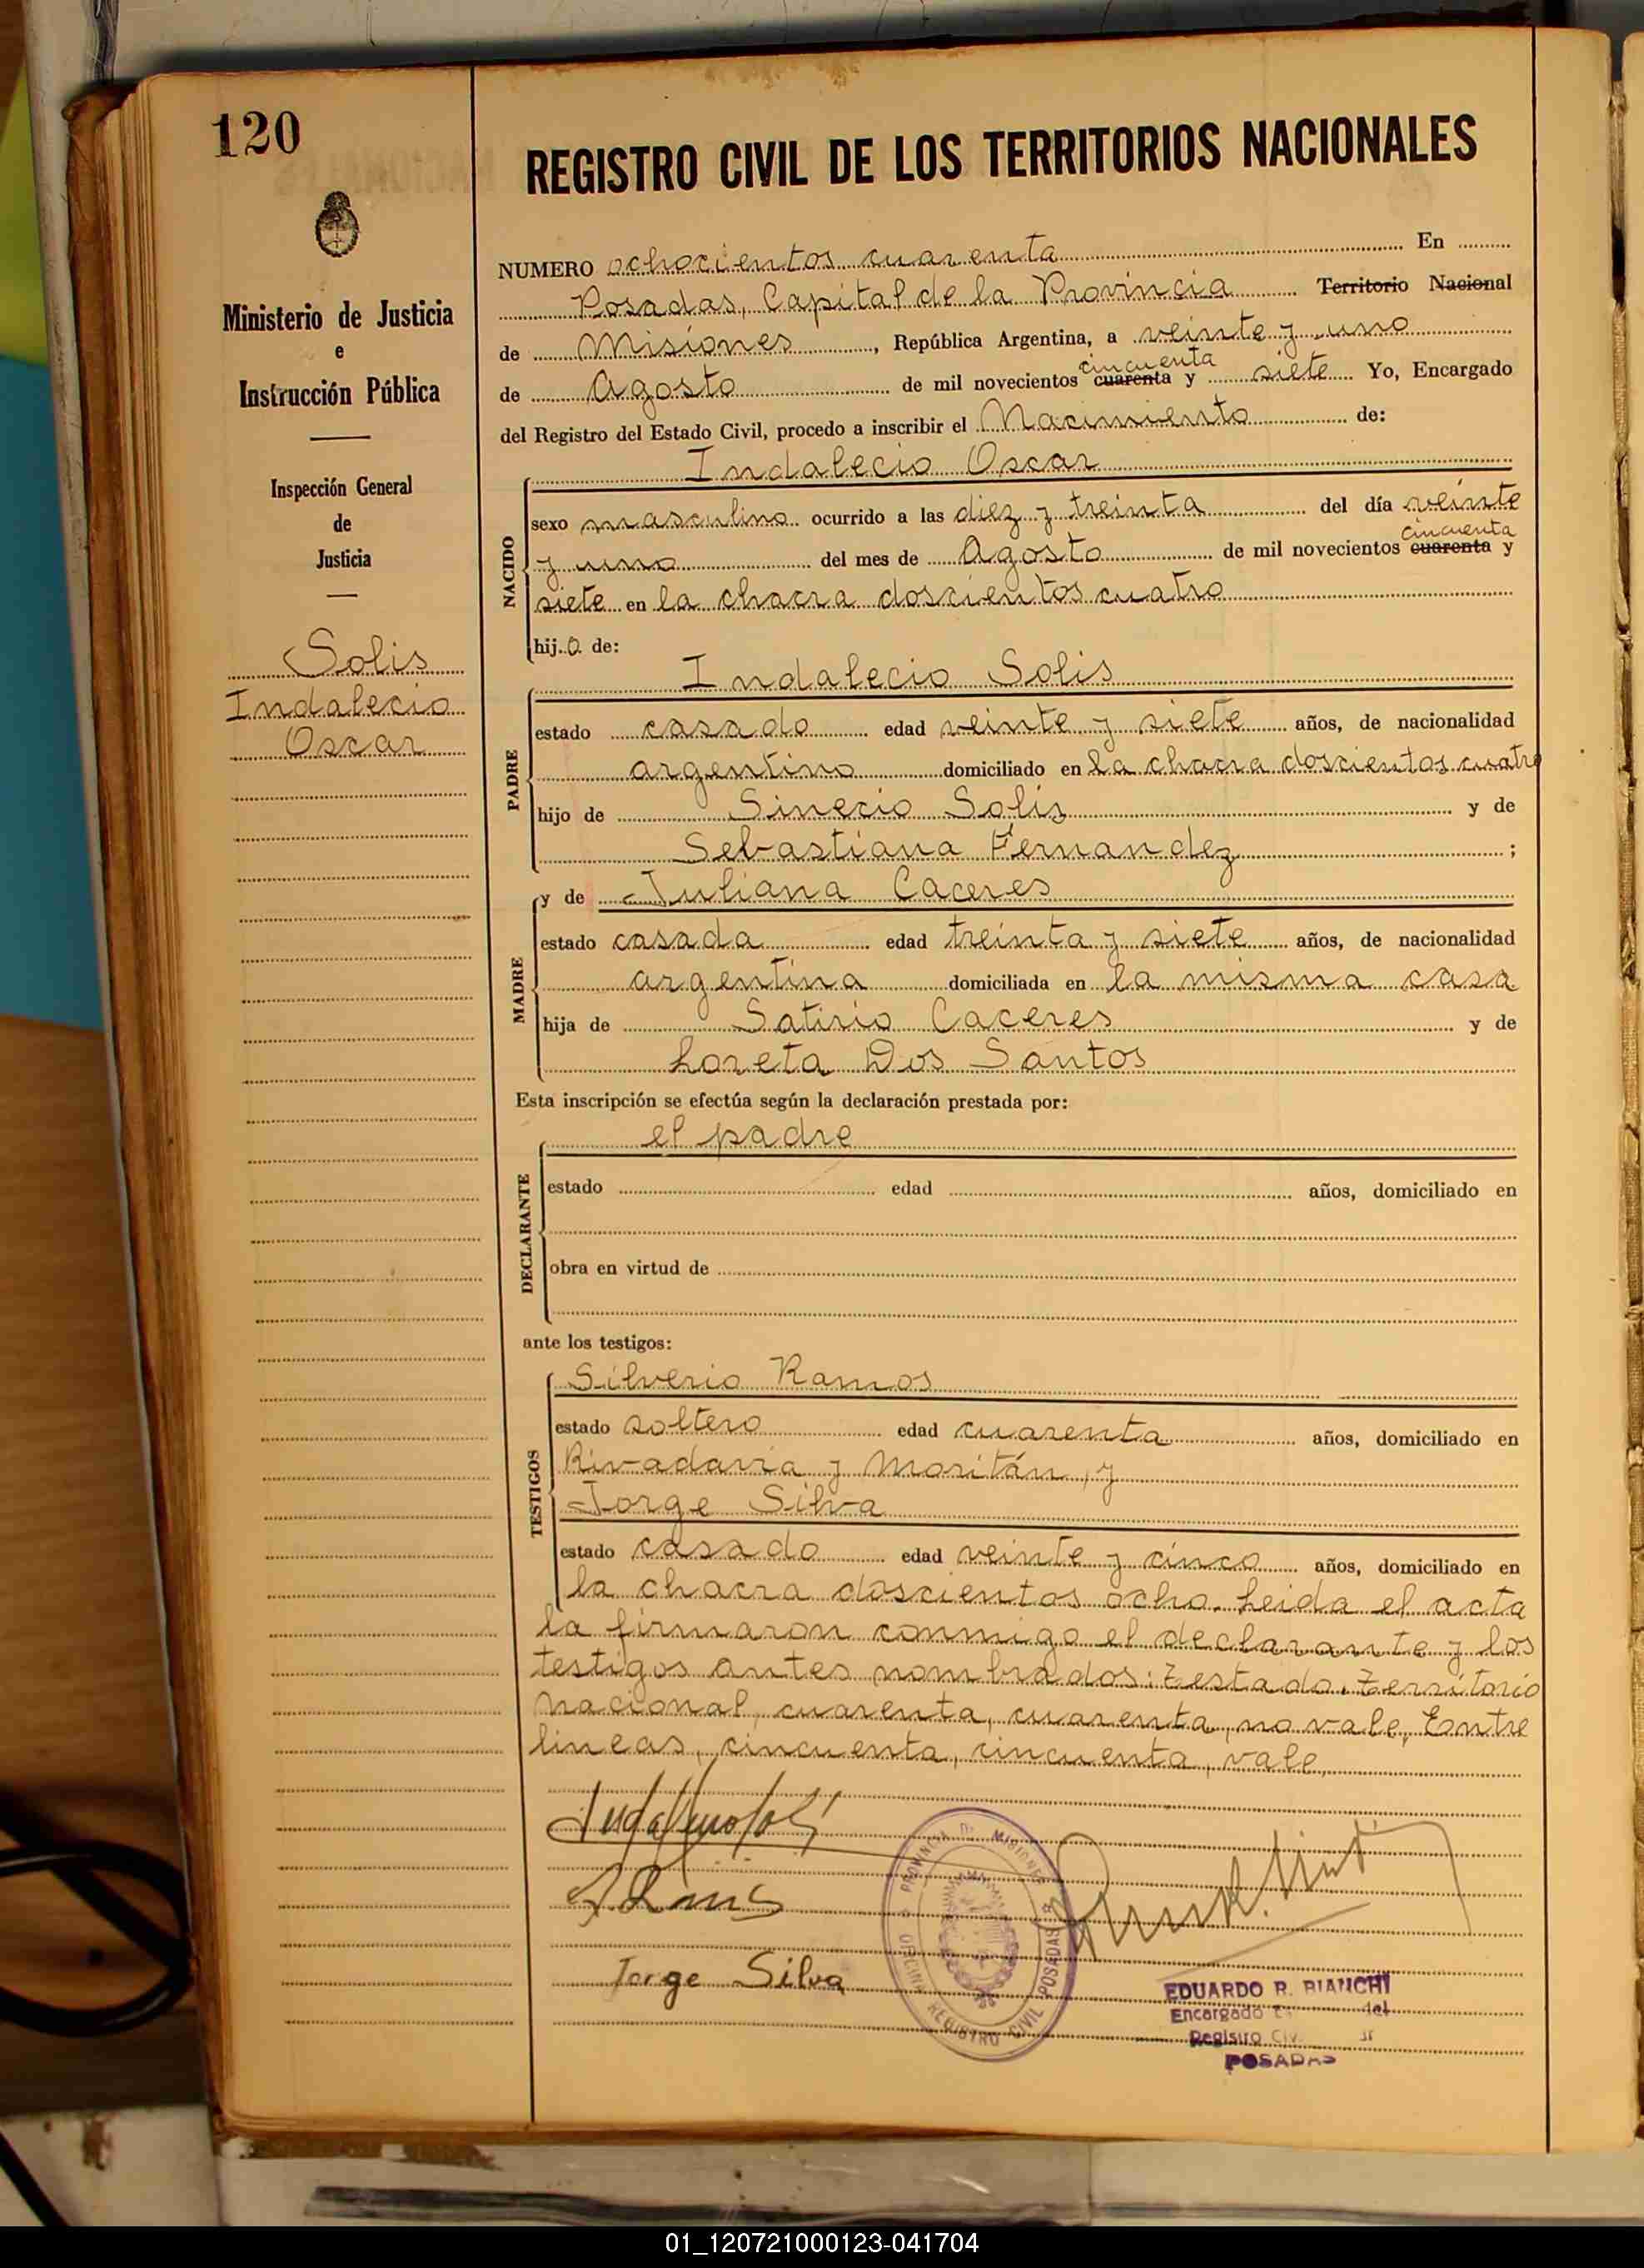 120
REGISTRO CIVIL DE LOS TERRITORIOS NACIONALES
Ministerio de Justicia
e
Instrucción Pública
Inspección General
de
Justicia
Solis
Indalecio
Oscar
NUMERO ochocientos cuarenta En
Posadas, Capital de la Provincia Territorio Nacional
de Misiones, República Argentina, a veinte y uno
cincuenta
de Agosto de mil novecientos cuarenta y siete Yo, Encargado
del Registro del Estado Civil, procedo a inscribir el Nacimiento de:
Indalecio Oscar
NACIDO
sexo masculino ocurrido a las diez y treinta del día veinte
cincuenta
y uno del mes de Agosto de mil novecientos cuarenta y
siete en la chacra doscientos cuatro
hijo de:
PADRE
Indalecio Solis
estado casado edad veinte y siete años, de nacionalidad
argentino domiciliado en la chacra doscientos cuatro
hijo de Sinecio Solis y de
Sebastiana Fernandez ;
MADRE
y de Juliana Caceres
estado casada edad treinta y siete años, de nacionalidad
argentina domiciliada en la misma casa
hija de Satirio Caceres y de
Loreta Dos Santos
Esta inscripción se efectúa según la declaración prestada por:
DECLARANTE
el padre
estado edad años, domiciliado en
obra en virtud de
ante los testigos:
TESTIGOS
Silverio Ramos
estado soltero edad cuarenta años, domiciliado en
Rivadavia y Moritán, y
Jorge Silva
estado casado edad veinte y cinco años, domiciliado en
la chacra doscientos ocho. Leida el acta
la firmaron conmigo el declarante y los
testigos antes nombrados: Testado: Territorio
nacional, cuarenta, cuarenta, no vale, Entre
lineas, cincuenta, cincuenta, vale
Jorge Silva
PROVINCIA DE MISIONES
OFICINA REGISTRO CIVIL POSADAS
EDUARDO R. BIANCHI
Encargado del
Registro Civ
POSADAS
01_120721000123-041704